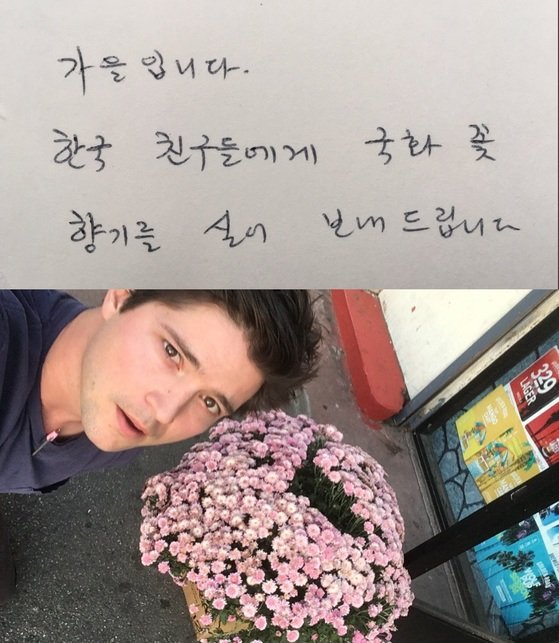 가을입니다.
한국 친구들에게 국화 꽃
향기를 실어 보내드립니다
329
LAGER